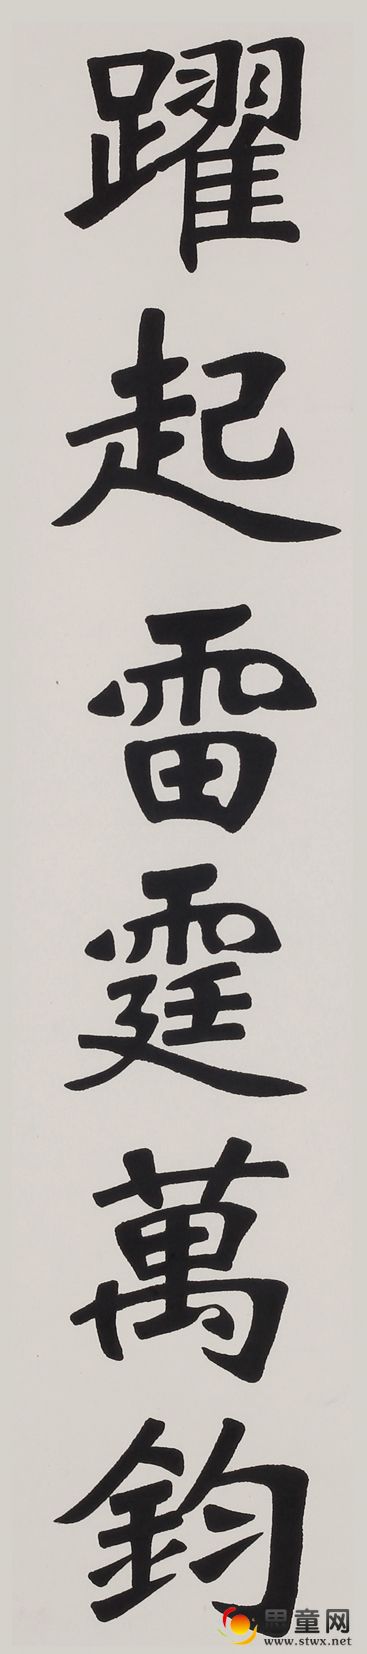 躍起雷霆萬鈞
思童网
www.stwx.net